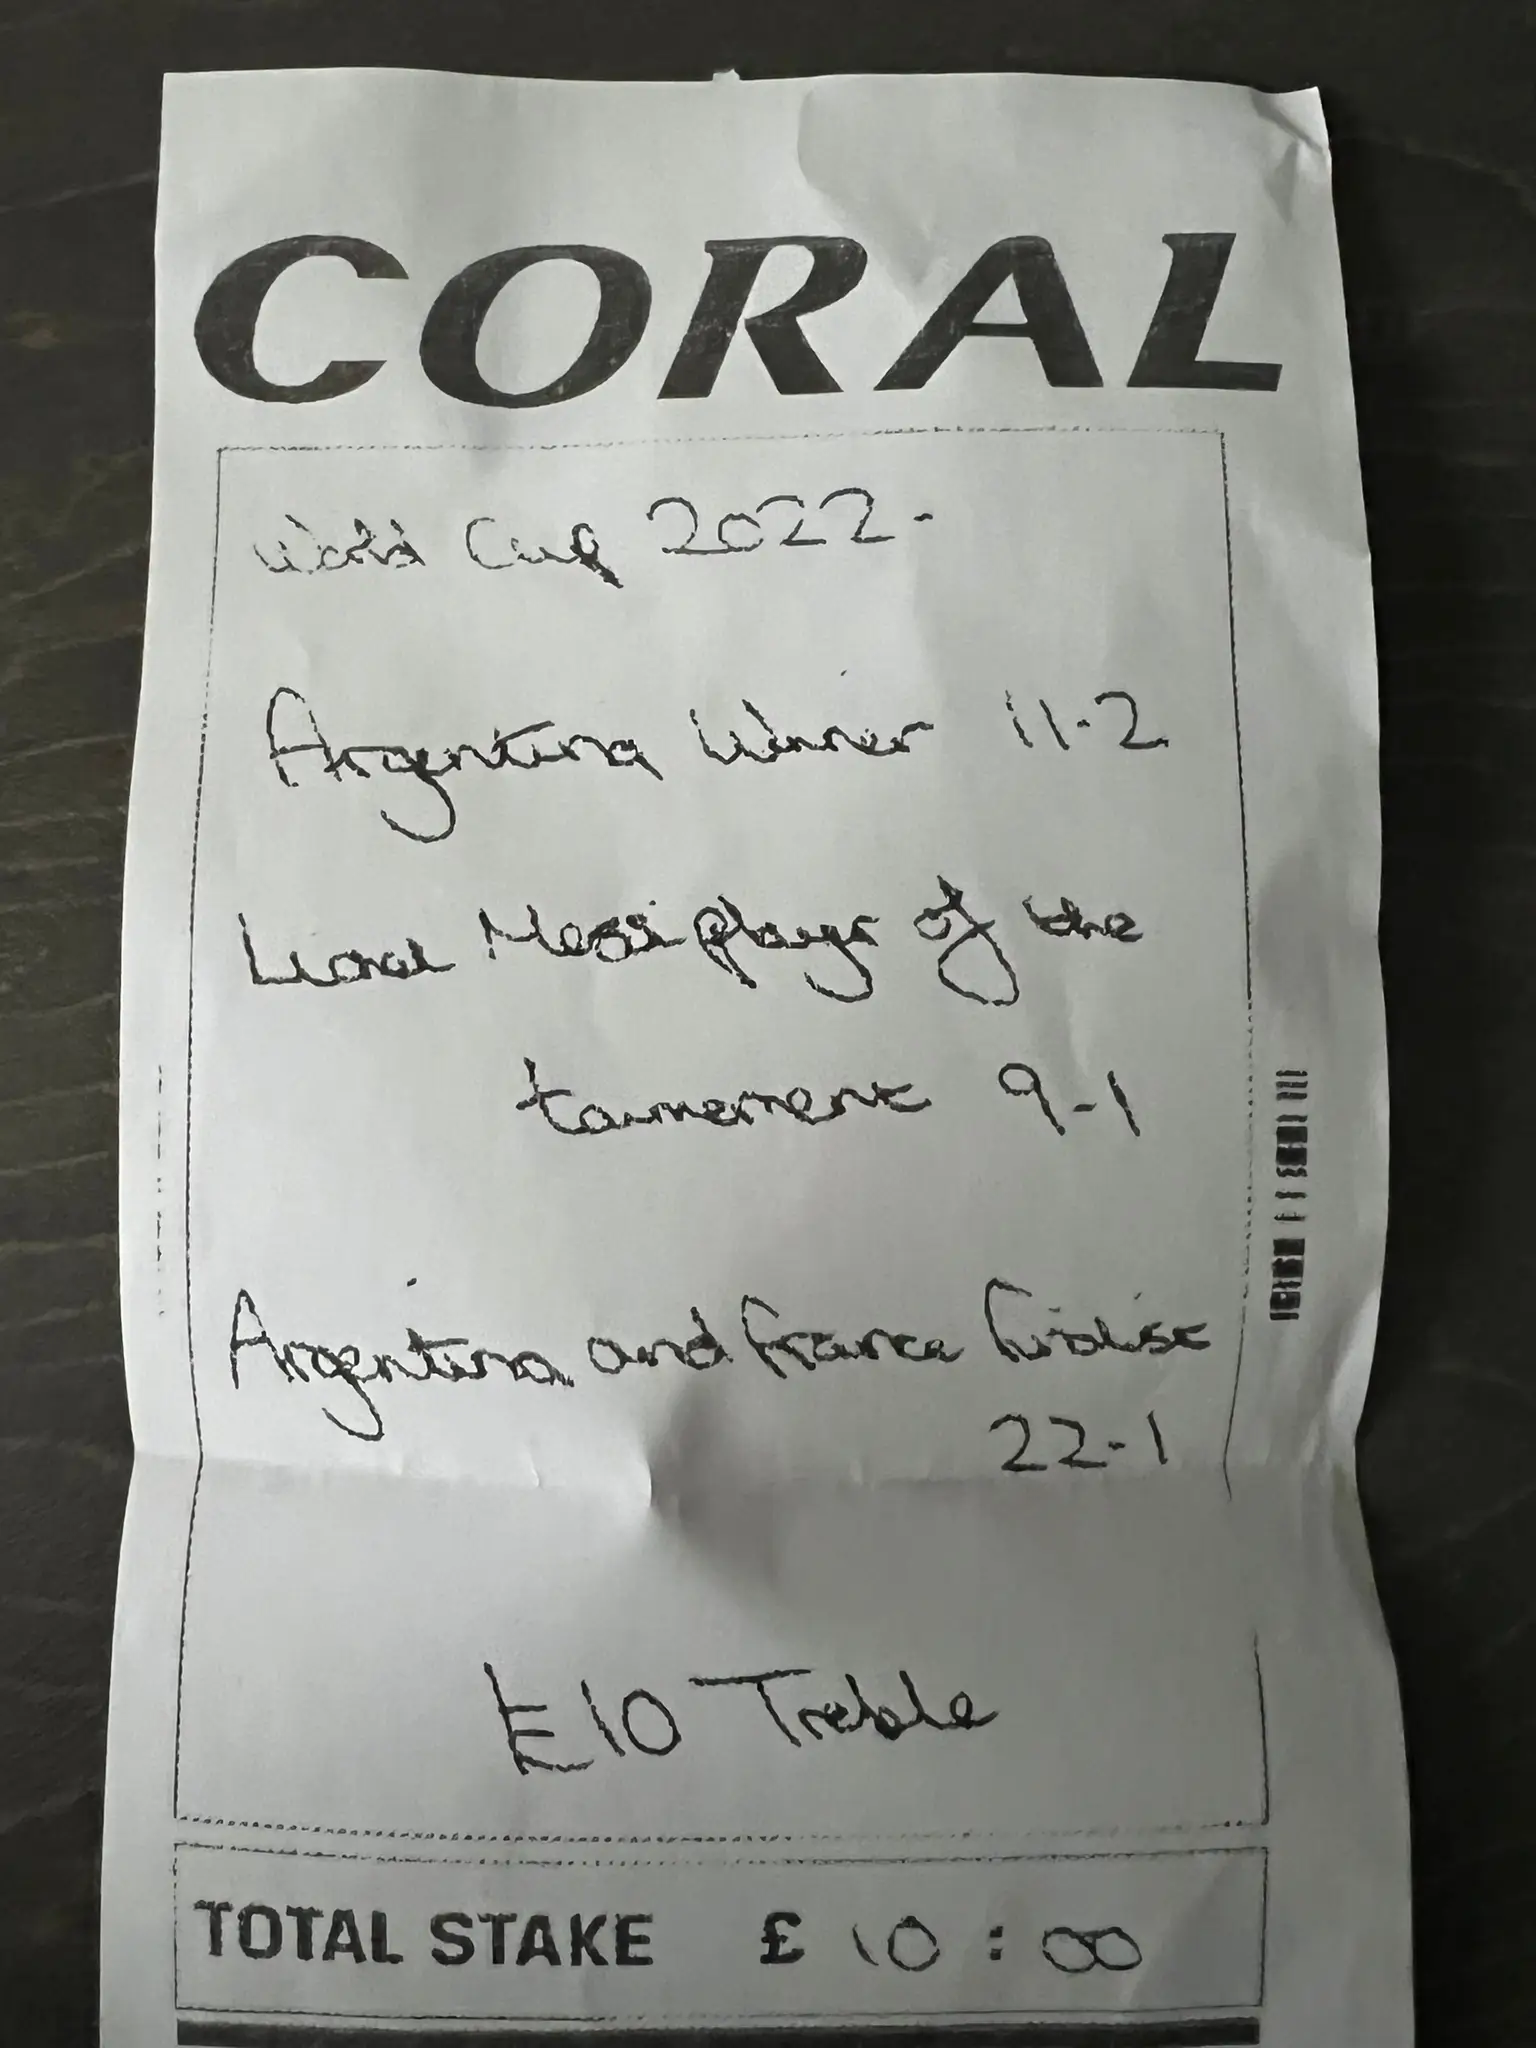 CORAL
World Cup 2022-
Argentina Winner 11-2
Lional Messi player of the
tournement 9-1
Argentina and France finalist
22-1
£10 Treble
TOTAL STAKE £ 10 : 00